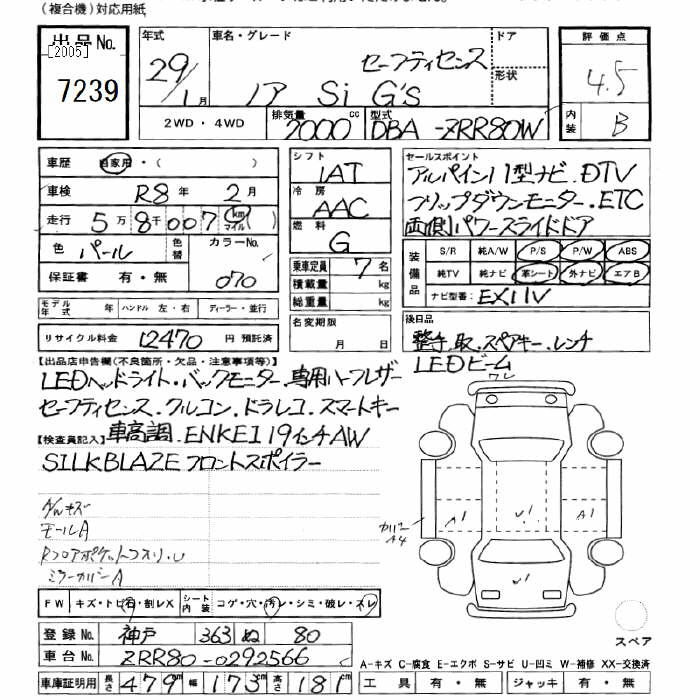 (複合機)対応用紙
出品No.
[2005]
7239
年式 29/1月
車名・グレード ノア Si G's セーフティセンス
ドア
形状
評価点 4.5
内装 B
2WD・4WD
排気量 2000 cc
型式 DBA-ZRR80W
車歴 自家用・( )
車検 R8年 2月
走行 5万8千007 km マイル
色 パール 色替 カラーNo. 070
保証書 有・無
モデル年式 年 ハンドル 左・右 ディーラー・並行
リサイクル料金 12470 円 預託済
シフト IAT
冷房 AAC
燃料 G
乗車定員 7 名
積載量 kg
総重量 kg
名変期限 月 日
セールスポイント
アルパイン11型ナビ.DTV
フリップダウンモニター.ETC
両側パワースライドドア
装備品 S/R 純A/W P/S P/W ABS
純TV 純ナビ 革シート 外ナビ エアB
ナビ型番: EX11V
後日品
整手.取.スペアキー.レンチ
【出品店申告欄(不良箇所・欠品・注意事項等)】
LEDヘッドライト・バックモニター.専用ハーフレザー
LEDビーム
セーフティセンス.クルコン.ドラレコ.スマートキー
【検査員記入】 車高調.ENKEI 19インチAW
SILKBLAZEフロントスポイラー
モールA
ミラーカバーA
ワレ
A1
A1
カバー A4
FW キズ・トビ石・割レX シート内装 コゲ・穴・汚レ・シミ・破レ・スレ
登録No. 神戸 363 ぬ 80
車台No. ZRR80-0292566
車庫証明用 長さ 479cm 幅 173cm 高さ 181cm
スペア
A-キズ C-腐食 E-エクボ S-サビ U-凹ミ W-補修 XX-交換済
工具 有・無 ジャッキ 有・無